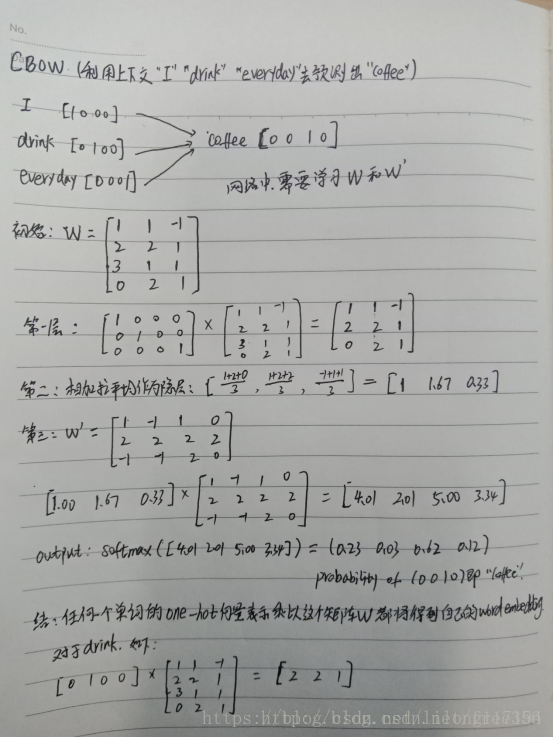 No.
CBOW (利用上下文"I" "drink" "everyday"去预测出"coffee")
I [1 0 0 0]
drink [0 1 0 0]
everyday [0 0 0 1]
coffee [0 0 1 0]
网络中需要学习W和W'
初始: W = [1 1 -1
2 2 1
3 1 1
0 2 1]
第一层: [1 0 0 0
0 1 0 0
0 0 0 1] × [1 1 -1
2 2 1
3 1 1
0 2 1] = [1 1 -1
2 2 1
0 2 1]
第二: 相加求平均作为隐层: [(1+2+0)/3, (1+2+2)/3, (-1+1+1)/3] = [1 1.67 0.33]
第三: W' = [1 -1 1 0
2 2 2 2
-1 -1 2 0]
[1.00 1.67 0.33] × [1 -1 1 0
2 2 2 2
-1 -1 2 0] = [4.01 2.01 5.00 3.34]
output: softmax([4.01 2.01 5.00 3.34]) = (0.23 0.03 0.62 0.12)
probability of (0 0 1 0) 即 "coffee".
结: 任何一个单词的one-hot向量表示乘以这个矩阵W都将得到自己的word embedding
对于drink, 如下:
[0 1 0 0] × [1 1 -1
2 2 1
3 1 1
0 2 1] = [2 2 1]